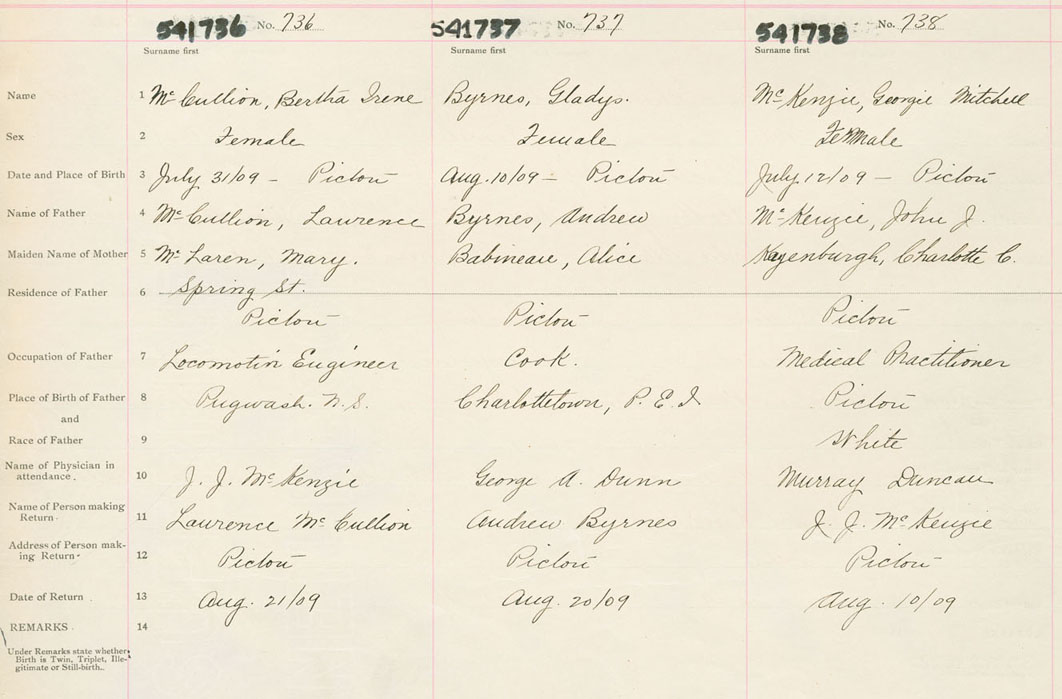 541736 No. 736 541737 No. 737 541738 No. 738
Surname first Surname first Surname first
Name 1 McCullion, Bertha Irene Byrnes, Gladys. McKenzie, Georgie Mitchell
Sex 2 Female Female Female
Date and Place of Birth 3 July 31/09 - Pictou Aug. 10/09 - Pictou July 12/09 - Pictou
Name of Father 4 McCullion, Lawrence Byrnes, Andrew McKenzie, John J.
Maiden Name of Mother 5 McLaren, Mary. Babineau, Alice Kayenburgh, Charlotte C.
Residence of Father 6 Spring St.
Pictou Pictou Pictou
Occupation of Father 7 Locomotiv Engineer Cook. Medical Practitioner
Place of Birth of Father 8 Pugwash. N.S. Charlottetown, P.E.I Pictou
and
Race of Father 9 White
Name of Physician in
attendance. 10 J. J. McKenzie George A. Dunn Murray Duncan
Name of Person making
Return. 11 Lawrence McCullion Andrew Byrnes J. J. McKenzie
Address of Person mak-
ing Return. 12 Pictou Pictou Pictou
Date of Return. 13 Aug. 21/09 Aug. 20/09 Aug. 10/09
REMARKS 14
Under Remarks state whether
Birth is Twin, Triplet, Ille-
gitimate or Still-birth..